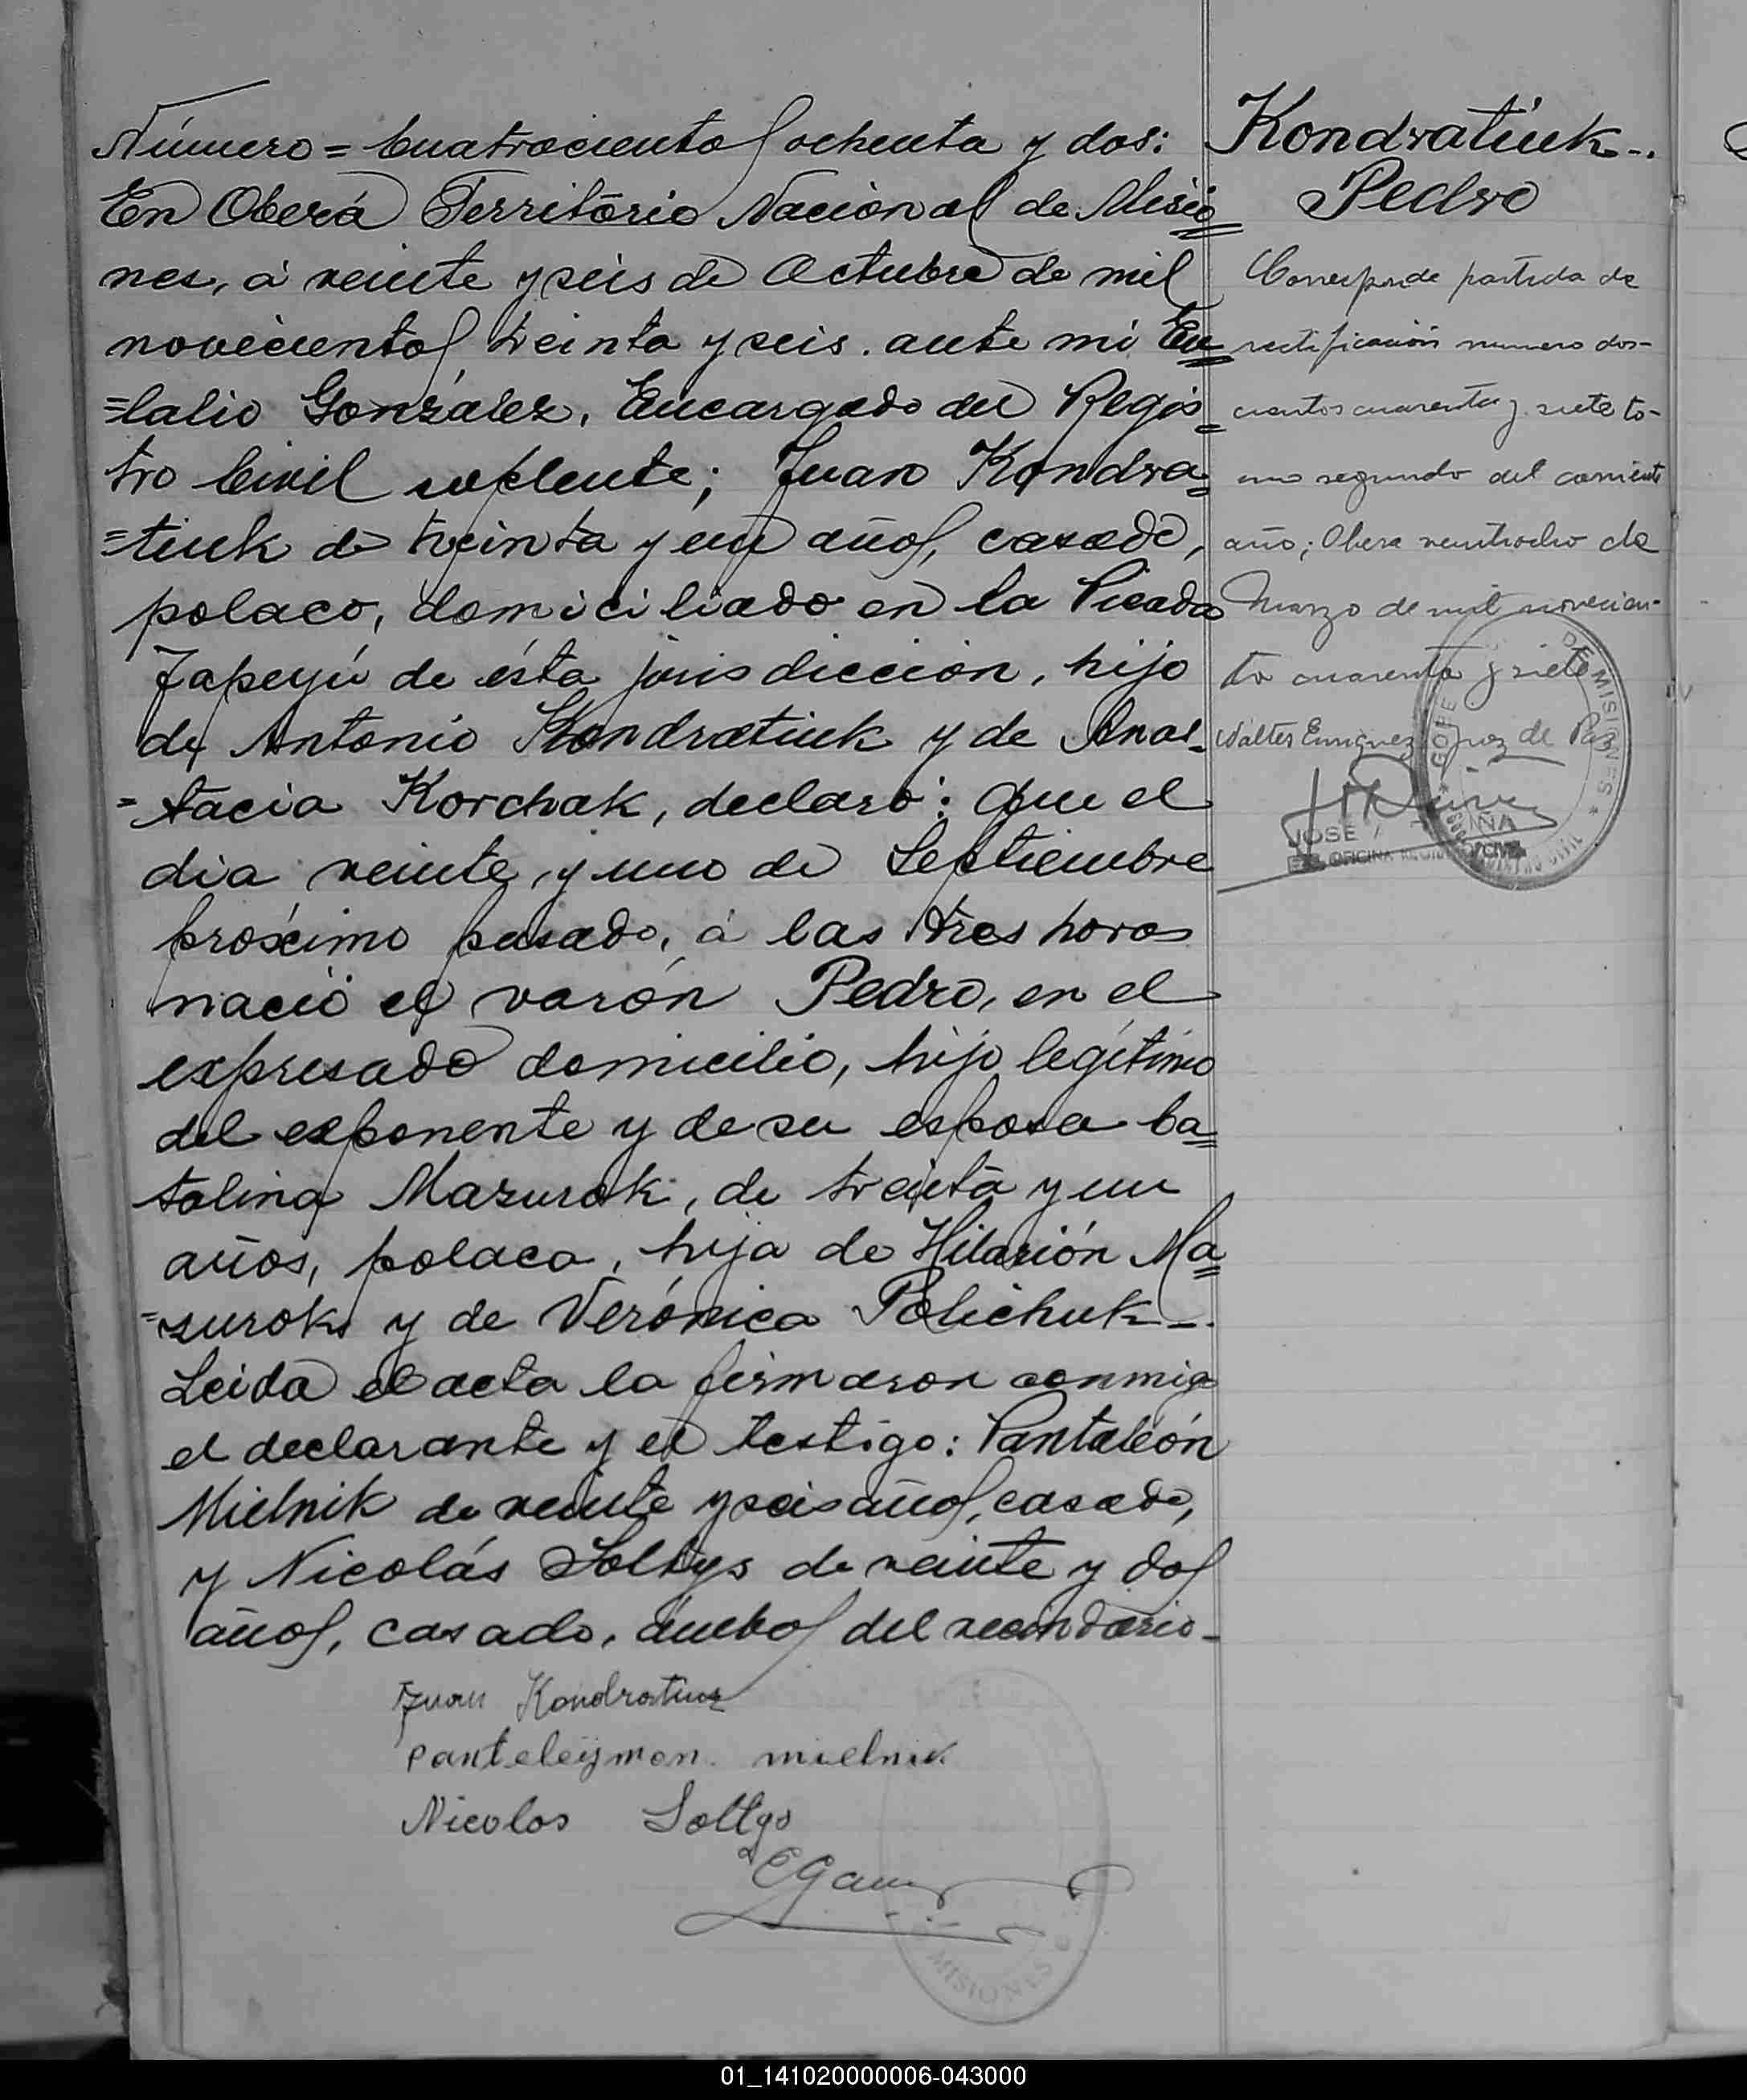 Número = Cuatrocientos ochenta y dos:
En Oberá Territorio Nacional de Misio=
nes, á veinte y seis de Octubre de mil
novecientos treinta y seis. ante mi Eu=
=lalio González, Encargado del Regis=
tro Civil suplente; Juan Kondra=
=tiuk de treinta y un años, casado,
polaco, domiciliado en la Picada
Yapeyú de ésta jurisdicción, hijo
de Antonio Kondratiuk y de Anas=
=tacia Korchak, declaró: Que el
dia veinte y uno de Septiembre
próximo pasado, á las tres horas
nació el varón Pedro, en el
expresado domicilio, hijo legítimo
del exponente y de su esposa Ca=
talina Mazurok, de treinta y un
años, polaca, hija de Hilarión Ma=
=zurok y de Verónica Polichuk-.
Leida el acta la firmaron conmigo
el declarante y el testigo: Pantaleón
Mielnik de veinte y seis años, casado,
y Nicolás Soltys de veinte y dos
años, casado, ámbos del vecindario-
Juan Kondratiuk
Panteleymon. mielnik
Nicolos Soltys
EGon
MISIONES
Kondratiuk-.
Pedro
Corresponde partida de
rectificación numero dos-
cientos cuarenta y siete to-
mo segundo del corriente
año; Obera veintiocho de
Marzo de mil novecien-
to cuarenta y siete
Walter Enriquez Juez de Paz
JOSE A
OFICINA REGISTRO CIVIL
DE MISIONES * REGISTRO CIVIL
01_141020000006-043000